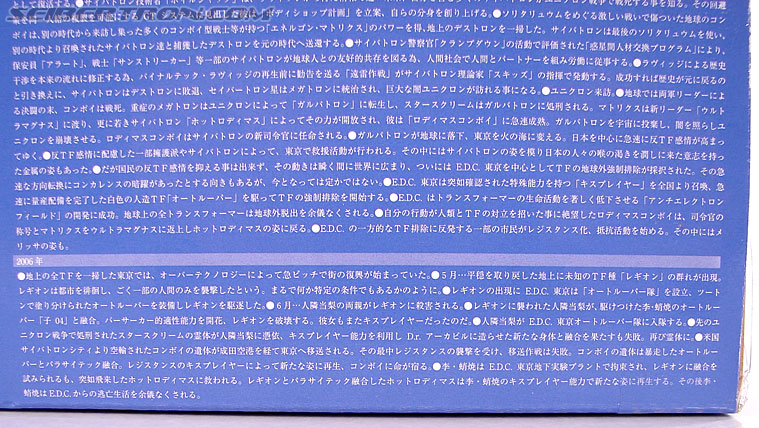 別の時代から召喚されたサイバトロン達と捕獲したデストロンを元の時代へ送還する。●サイバトロン警察官「クランプダウン」の活動で評価された「惑星間人材交換プログラム」により、
保安員「アラート」、戦士「サンストリーカー」等一部のサイバトロンが地球人との友好的共存を図る為、人間社会で人間とパートナーを組み労働に従事する。●ラヴィッジによる歴史
干渉を本来の流れに修正する為、バイナルテック・ラヴィッジの再生前に勧告を送る「逮雷作戦」がサイバトロン理論家「スキッズ」の指揮で発動する。成功すれば歴史が元に戻るの
と引き換えに、サイバトロンはデストロンに敗退、セイバートロン星はメガトロンに統治され、巨大な闇ユニクロンが訪れる事になる。●ユニクロン来訪。●地球では両軍リーダーによ
る決闘の末、コンボイは戦死。重症のメガトロンはユニクロンによって「ガルバトロン」に転生し、スタースクリームはガルバトロンに処刑される。マトリクスは新リーダー「ウルト
ラマグナス」に渡り、更に若きサイバトロン「ホットロディマス」によってその力が開放され、彼は「ロディマスコンボイ」に急速成熟。ガルバトロンを宇宙に投棄し、闇を照らしユ
ニクロンを崩壊させる。ロディマスコンボイはサイバトロンの新司令官に任命される。●ガルバトロンが地球に落下、東京を火の海に変える。日本を中心に急速に反ＴＦ感情が高まっ
てゆく。●反ＴＦ感情に配慮した一部擁護派やサイバトロンによって、東京で救援活動が行われる。その中にはサイバトロンの姿を模り日本の人々の喉の渇きを潤しに来た意志を持っ
た金属の姿もあった。●だが国民の反ＴＦ感情を抑える事は出来ず、その動きは瞬く間に世界に広まり、ついには E.D.C. 東京を中心としてＴＦの地球外強制排除が採択された。その急
速な方向転換にコンカレンスの暗躍があったとする向きもあるが、今となっては定かではない。●E.D.C. 東京は突如確認された特殊能力を持つ「キスプレイヤー」を全国より召喚、急
速に量産配備を完了した白色の人造ＴＦ「オートルーパー」を駆ってＴＦの強制排除を開始する。●E.D.C. はトランスフォーマーの生命活動を著しく低下させる「アンチエレクトロン
フィールド」の開発に成功。地球上の全トランスフォーマーは地球外脱出を余儀なくされる。●自分の行動が人類とＴＦの対立を招いた事に絶望したロディマスコンボイは、司令官の
称号とマトリクスをウルトラマグナスに返上しホットロディマスの姿に戻る。●E.D.C. の一方的なＴＦ排除に反発する一部の市民がレジスタンス化、抵抗活動を始める。その中にはメ
リッサの姿も。
2006 年
●地上の全ＴＦを一掃した東京では、オーバーテクノロジーによって急ピッチで街の復興が始まっていた。●５月…平穏を取り戻した地上に未知のＴＦ種「レギオン」の群れが出現。
レギオンは都市を徘徊し、ごく一部の人間のみを襲撃したという。まるで何か特定の条件でもあるかのように。●レギオンの出現に E.D.C. 東京は「オートルーパー隊」を設立、ツート
ンで塗り分けられたオートルーパーを装備しレギオンを駆逐した。●６月…人隣当梨の両親がレギオンに殺害される。●レギオンに襲われた人隣当梨が、駆けつけた李・蛸焼のオートルー
パー「子 04」と融合。パーサーカー的適性能力を開花、レギオンを破壊する。彼女もまたキスプレイヤーだったのだ。●人隣当梨が E.D.C. 東京オートルーパー隊に入隊する。●先のユ
ニクロン戦争で処刑されたスタースクリームの霊体が人隣当梨に憑依、キスプレイヤー能力を利用し Dr. アーカビルに造らせた新たな身体と融合を果たすも失敗、再び霊体に。●米国
サイバトロンシティより空輸されたコンボイの遺体が成田空港を経て東京へ移送される。その最中レジスタンスの襲撃を受け、移送作戦は失敗。コンボイの遺体は暴走したオートルー
パーとパラサイテック融合。レジスタンスのキスプレイヤーによって新たな姿に再生、コンボイに命が宿る。●李・蛸焼は E.D.C. 東京地下実験プラントで拘束され、レギオンに融合を
試みられるも、突如飛来したホットロディマスに救われる。レギオンとパラサイテック融合したホットロディマスは李・蛸焼のキスプレイヤー能力で新たな姿に再生する。その後李・
蛸焼は E.D.C. からの逃亡生活を余儀なくされる。